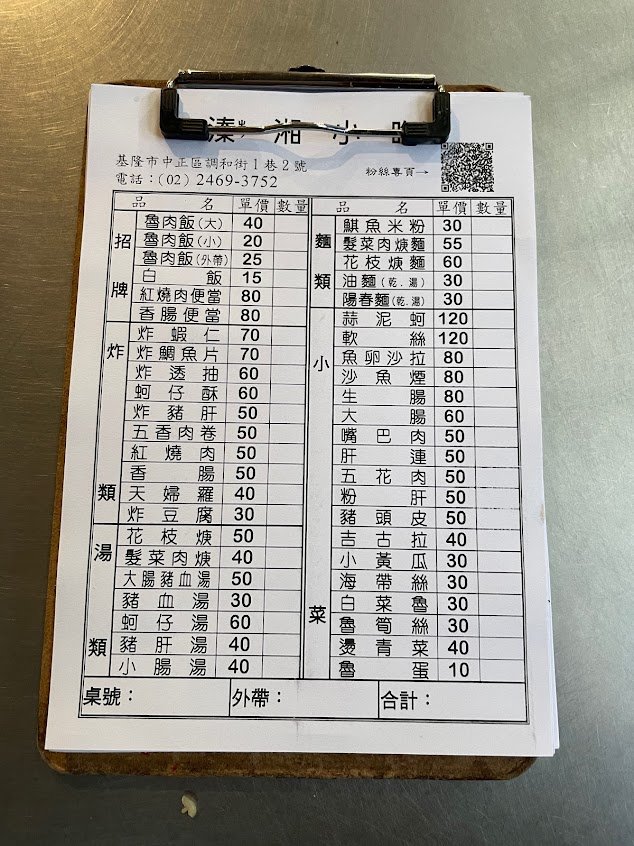 溱湘小
基隆市中正區調和街1巷2號
電話：(02) 2469-3752
粉絲專頁→
品名 單價 數量
招牌
魯肉飯(大) 40
魯肉飯(小) 20
魯肉飯(外帶) 25
白飯 15
紅燒肉便當 80
香腸便當 80
炸類
炸蝦仁 70
炸鯛魚片 70
炸透抽 60
蚵仔酥 60
炸豬肝 50
五香肉卷 50
紅燒肉 50
香腸 50
天婦羅 40
炸豆腐 30
湯類
花枝焿 50
髮菜肉焿 40
大腸豬血湯 50
豬血湯 30
蚵仔湯 60
豬肝湯 40
小腸湯 40
品名 單價 數量
麵類
鯕魚米粉 30
髮菜肉焿麵 55
花枝焿麵 60
油麵(乾.湯) 30
陽春麵(乾.湯) 30
小菜
蒜泥蚵 120
軟絲 120
魚卵沙拉 80
沙魚煙 80
生腸 80
大腸 60
嘴巴肉 50
肝連 50
五花肉 50
粉肝 50
豬頭皮 50
吉古拉 40
小黃瓜 30
海帶絲 30
白菜魯 30
魯筍絲 30
燙青菜 40
魯蛋 10
桌號： 外帶： 合計：